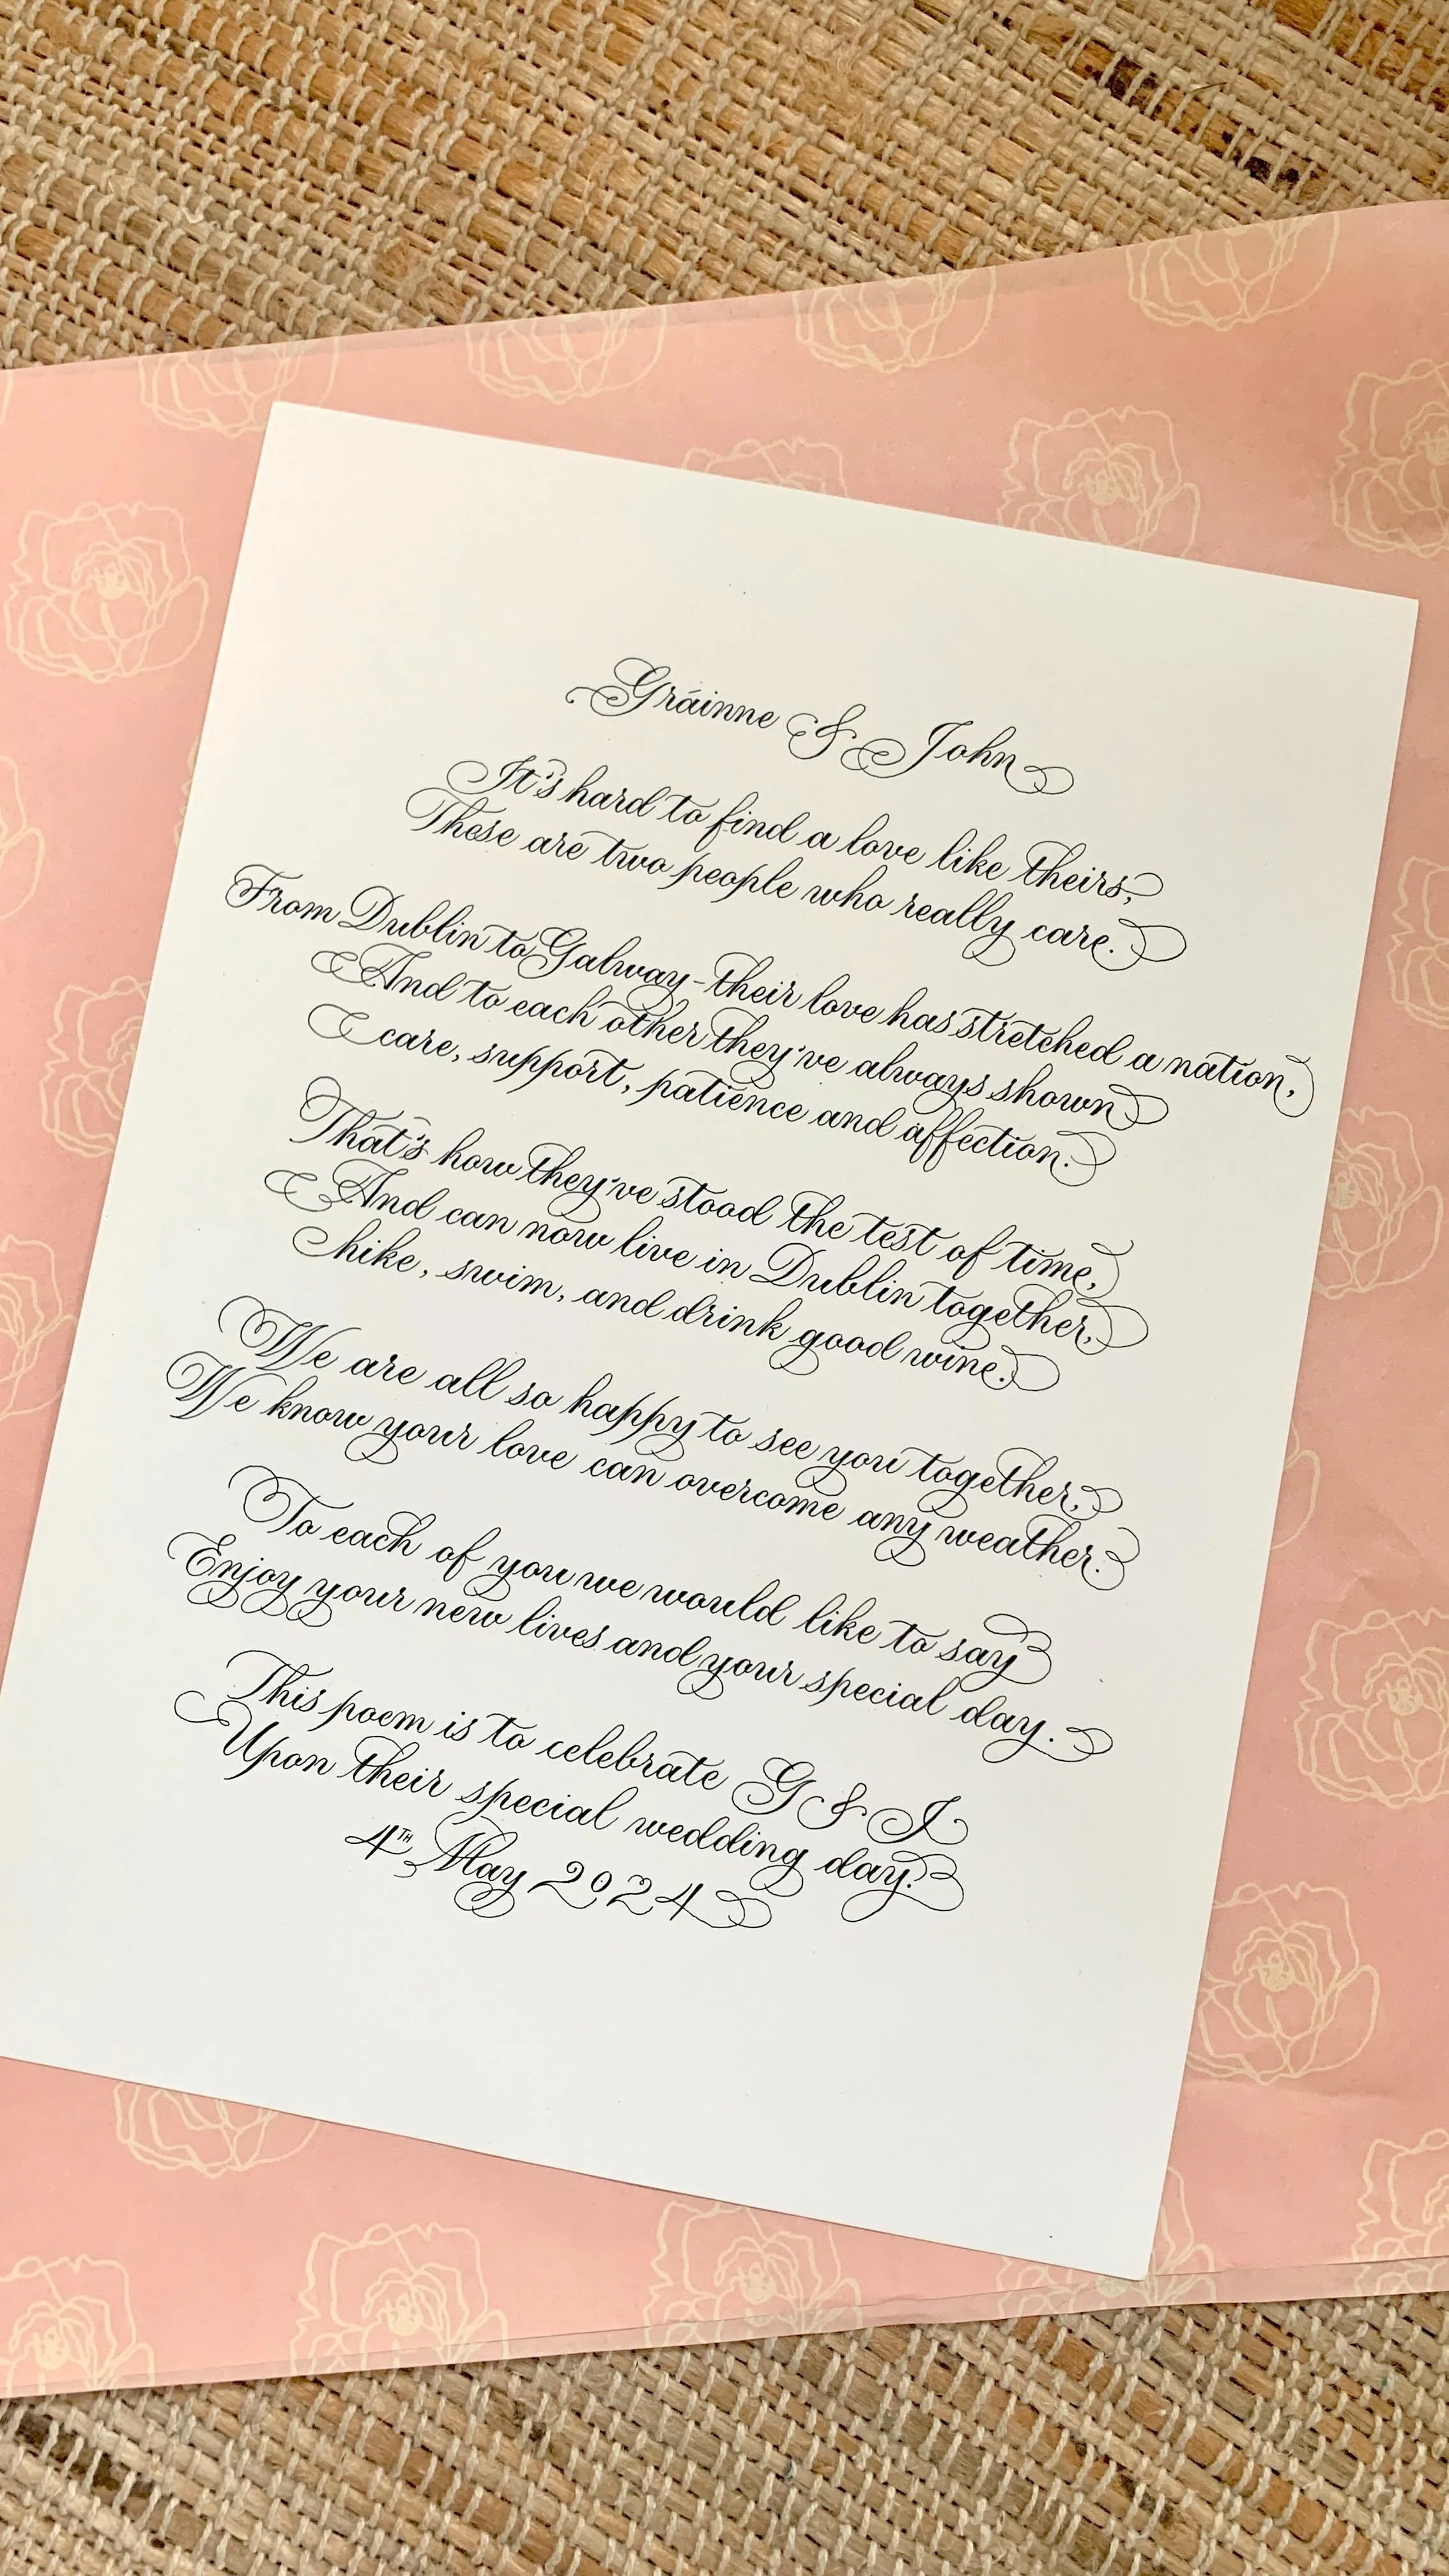 Gráinne & John
It's hard to find a love like theirs,
These are two people who really care.
From Dublin to Galway - their love has stretched a nation,
And to each other they've always shown
care, support, patience and affection.
That's how they've stood the test of time,
And can now live in Dublin together,
hike, swim, and drink good wine.
We are all so happy to see you together,
We know your love can overcome any weather.
To each of you we would like to say
Enjoy your new lives and your special day.
This poem is to celebrate G & J
Upon their special wedding day.
4TH May 2024